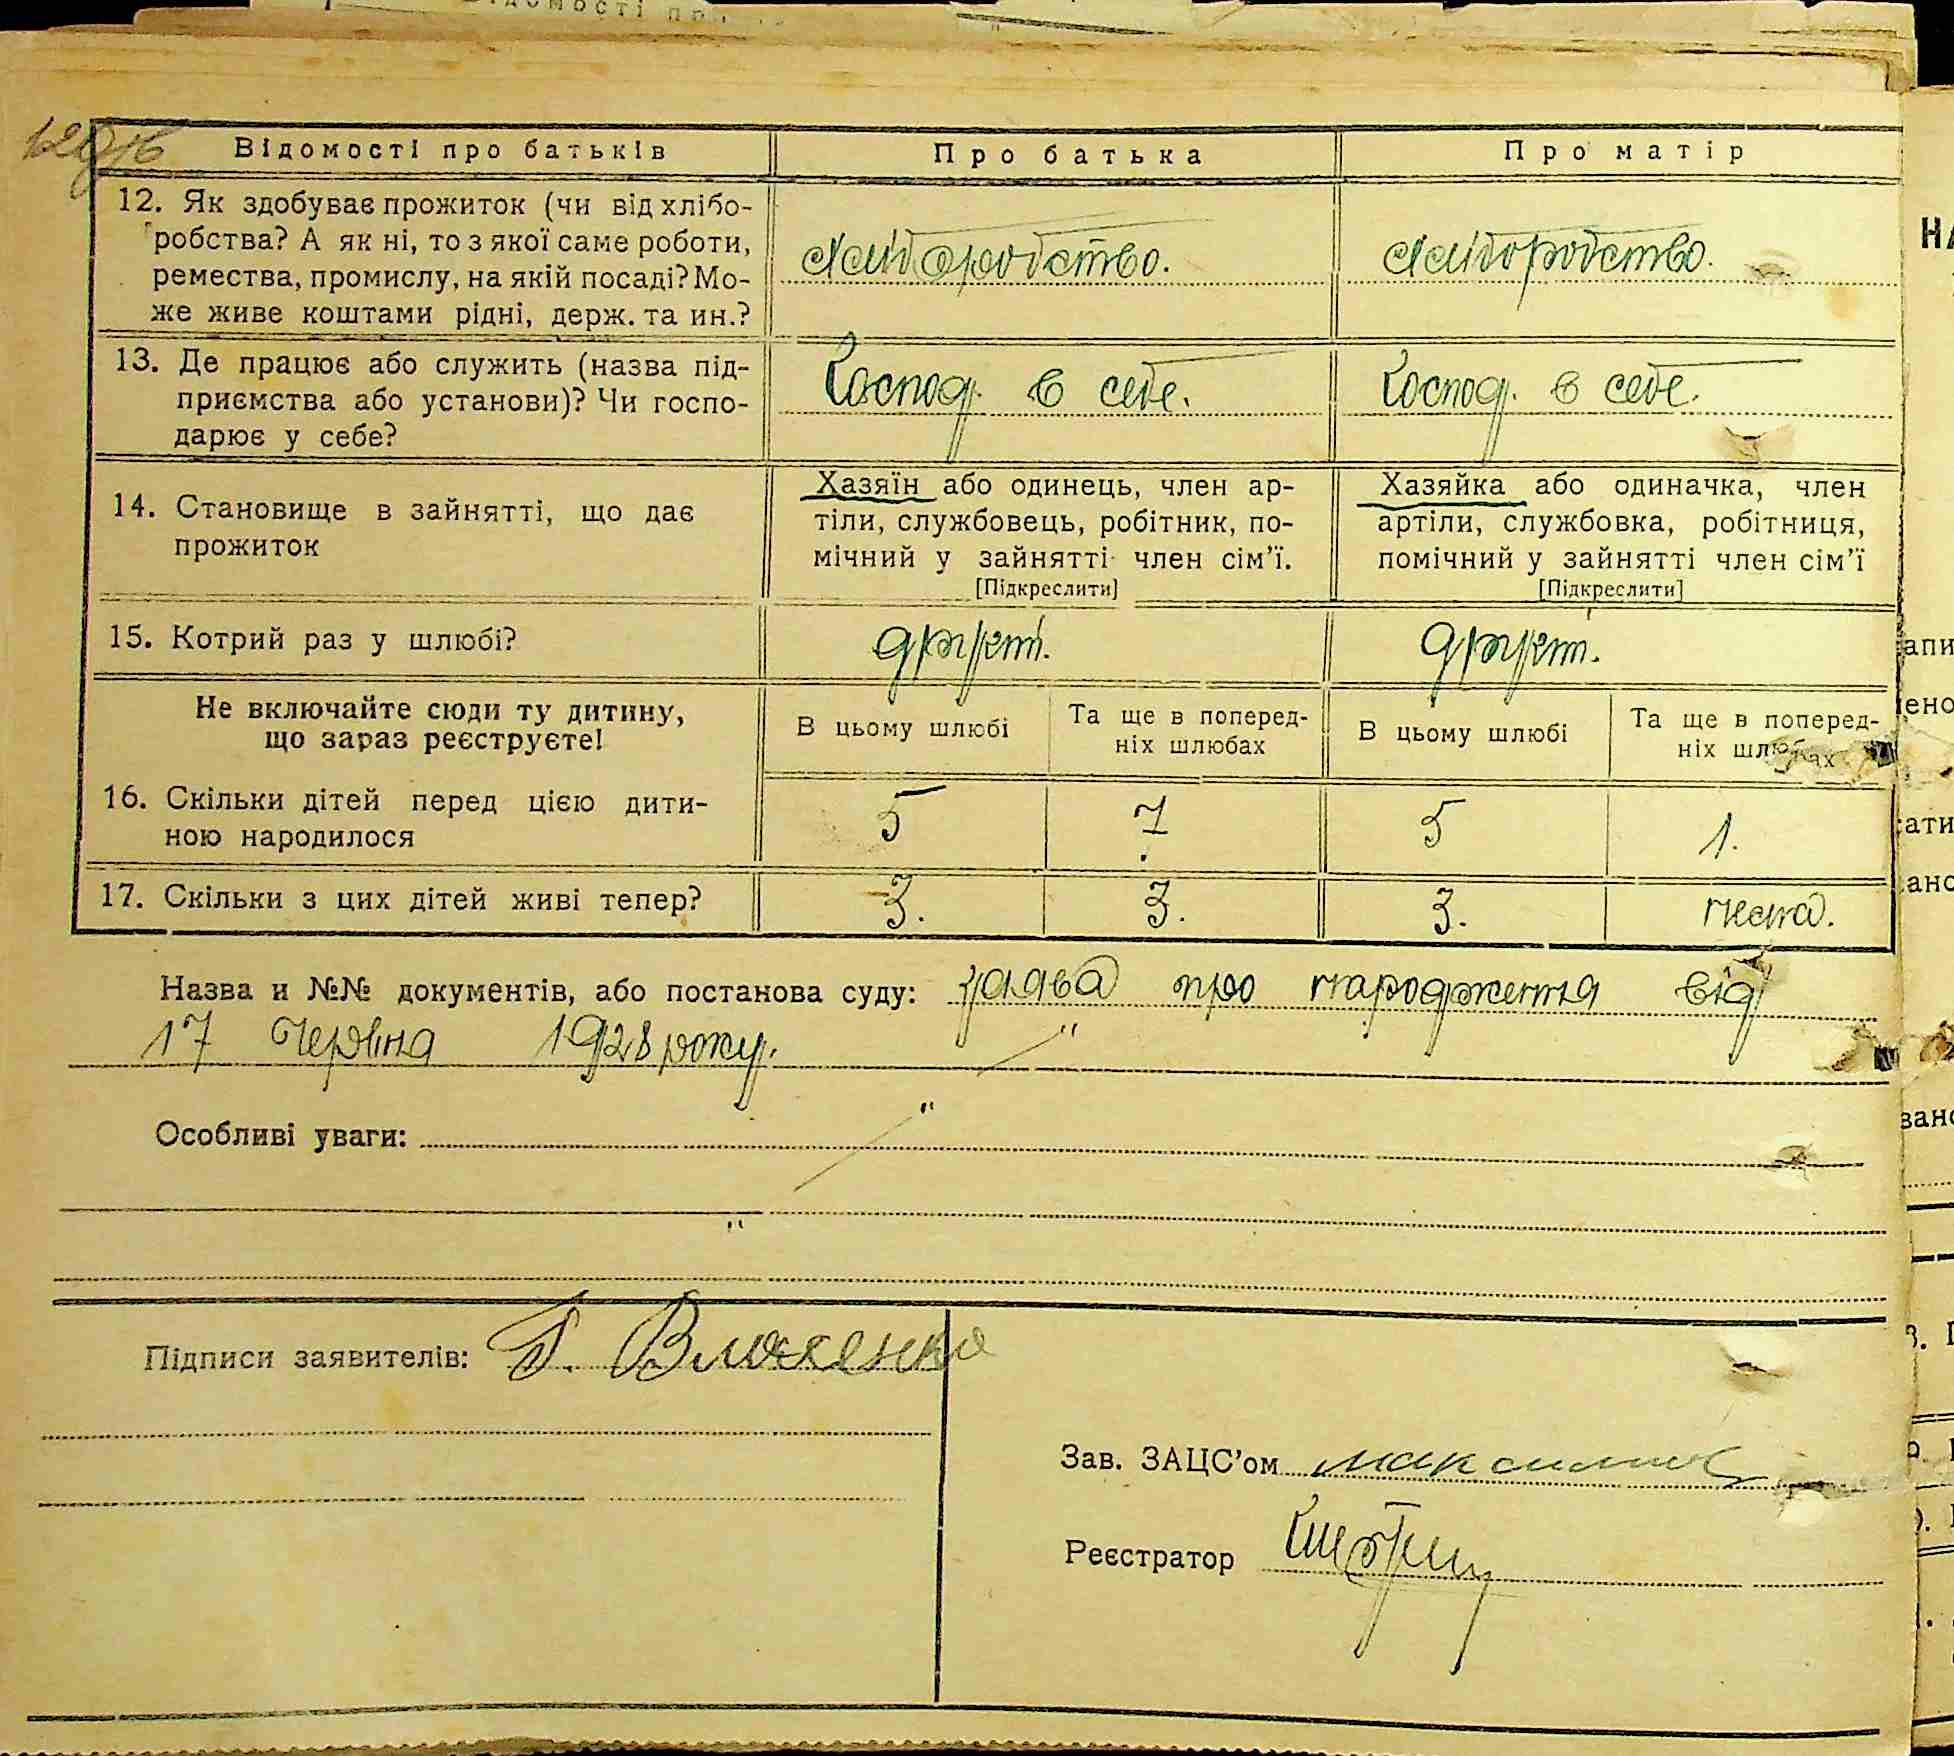 Відомості про батьків
Про батька
Про матір
12. Як здобуває прожиток (чи від хлібо-
робства? А як ні, то з якої саме роботи,
ремества, промислу, на якій посаді? Мо-
же живе коштами рідні, держ. та ин.?
хліборобство.
хліборобство.
13. Де працює або служить (назва під-
приємства або установи)? Чи госпо-
дарює у себе?
Господ. в себе.
Господ. в себе.
14. Становище в зайнятті, що дає
прожиток
Хазяїн або одинець, член ар-
тіли, службовець, робітник, по-
мічний у зайнятті член сім'ї.
[Підкреслити]
Хазяйка або одиначка, член
артіли, службовка, робітниця,
помічний у зайнятті член сім'ї
[Підкреслити]
15. Котрий раз у шлюбі?
другий.
другий.
Не включайте сюди ту дитину,
що зараз реєструєте!
В цьому шлюбі
Та ще в поперед-
ніх шлюбах
В цьому шлюбі
Та ще в поперед-
ніх шлюбах
16. Скільки дітей перед цією дити-
ною народилося
5
7
5
1.
17. Скільки з цих дітей живі тепер?
3.
3.
3.
нема.
Назва и №№ документів, або постанова суду: заява про народження від
17 Червня 1928 року.
Особливі уваги:
Підписи заявителів:
Зав. ЗАЦС'ом
Реєстратор